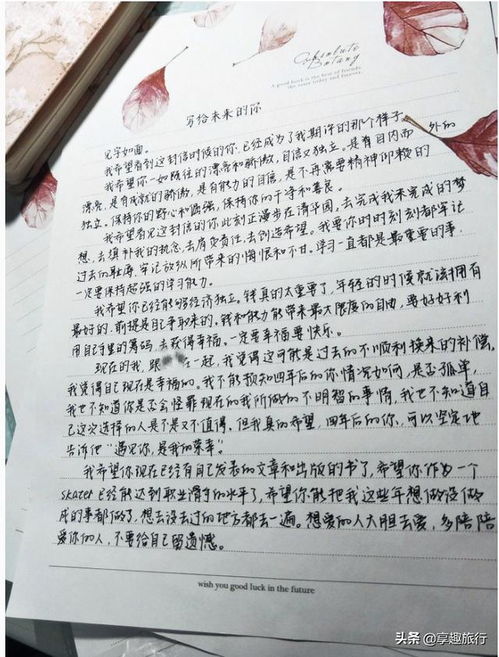 Absolute
Botany
A good luck is the best of friends,
写给未来的你
见字如面。
我希望看到这封信时候的你,已经成为了我期许的那个样子。
我希望你一如既往的漂亮和骄傲,自信又独立。是有目内而外的
漂亮,是有成就的骄傲,是有能力的自信,是不再需要精神仰赖的
独立。保持你的野心和倔强,保持你的干净和善良。
我希望看见这封信的你,此刻正漫步在清华园,去完成我未完成的梦
想,去填补我的执念,去肩负责任,去创造希望。我要你时时刻刻都牢记
过去的耻辱,牢记放纵所带来的悔恨和不甘。学习一直都是最重要的事,
一定要保持超强的学习能力。
我希望你已经能够经济独立。钱真的太重要了,年轻的时候就该拥有
最好的,前提是自己争取来的。钱和能力能带来最大限度的自由,要好好利
用自己手里的筹码,去获得幸福。一定要幸福要快乐。
现在的我,跟 在一起,我觉得这可能是过去的不顺利换来的补偿。
我觉得自己现在是幸福的。我不能预知四年后的你情况如何,是否孤单,
我也不知道你是否会怪罪现在的我所做的不明智的事情,我也不知道自
己这次选择的人是不是又不值得。但我真的希望,四年后的你,可以坚定地
告诉他“遇见你,是我的荣幸”。
我希望你现在已经有自己发表的文章和出版的书了,希望你作为一个
skater已经能达到职业滑手的水平了,希望你能把我这些年想做没做
成的事都做了,想去没去过的地方都去一遍。想爱的人大胆去爱,多陪陪
爱你的人,不要给自己留遗憾。
wish you good luck in the future
头条 @享趣旅行